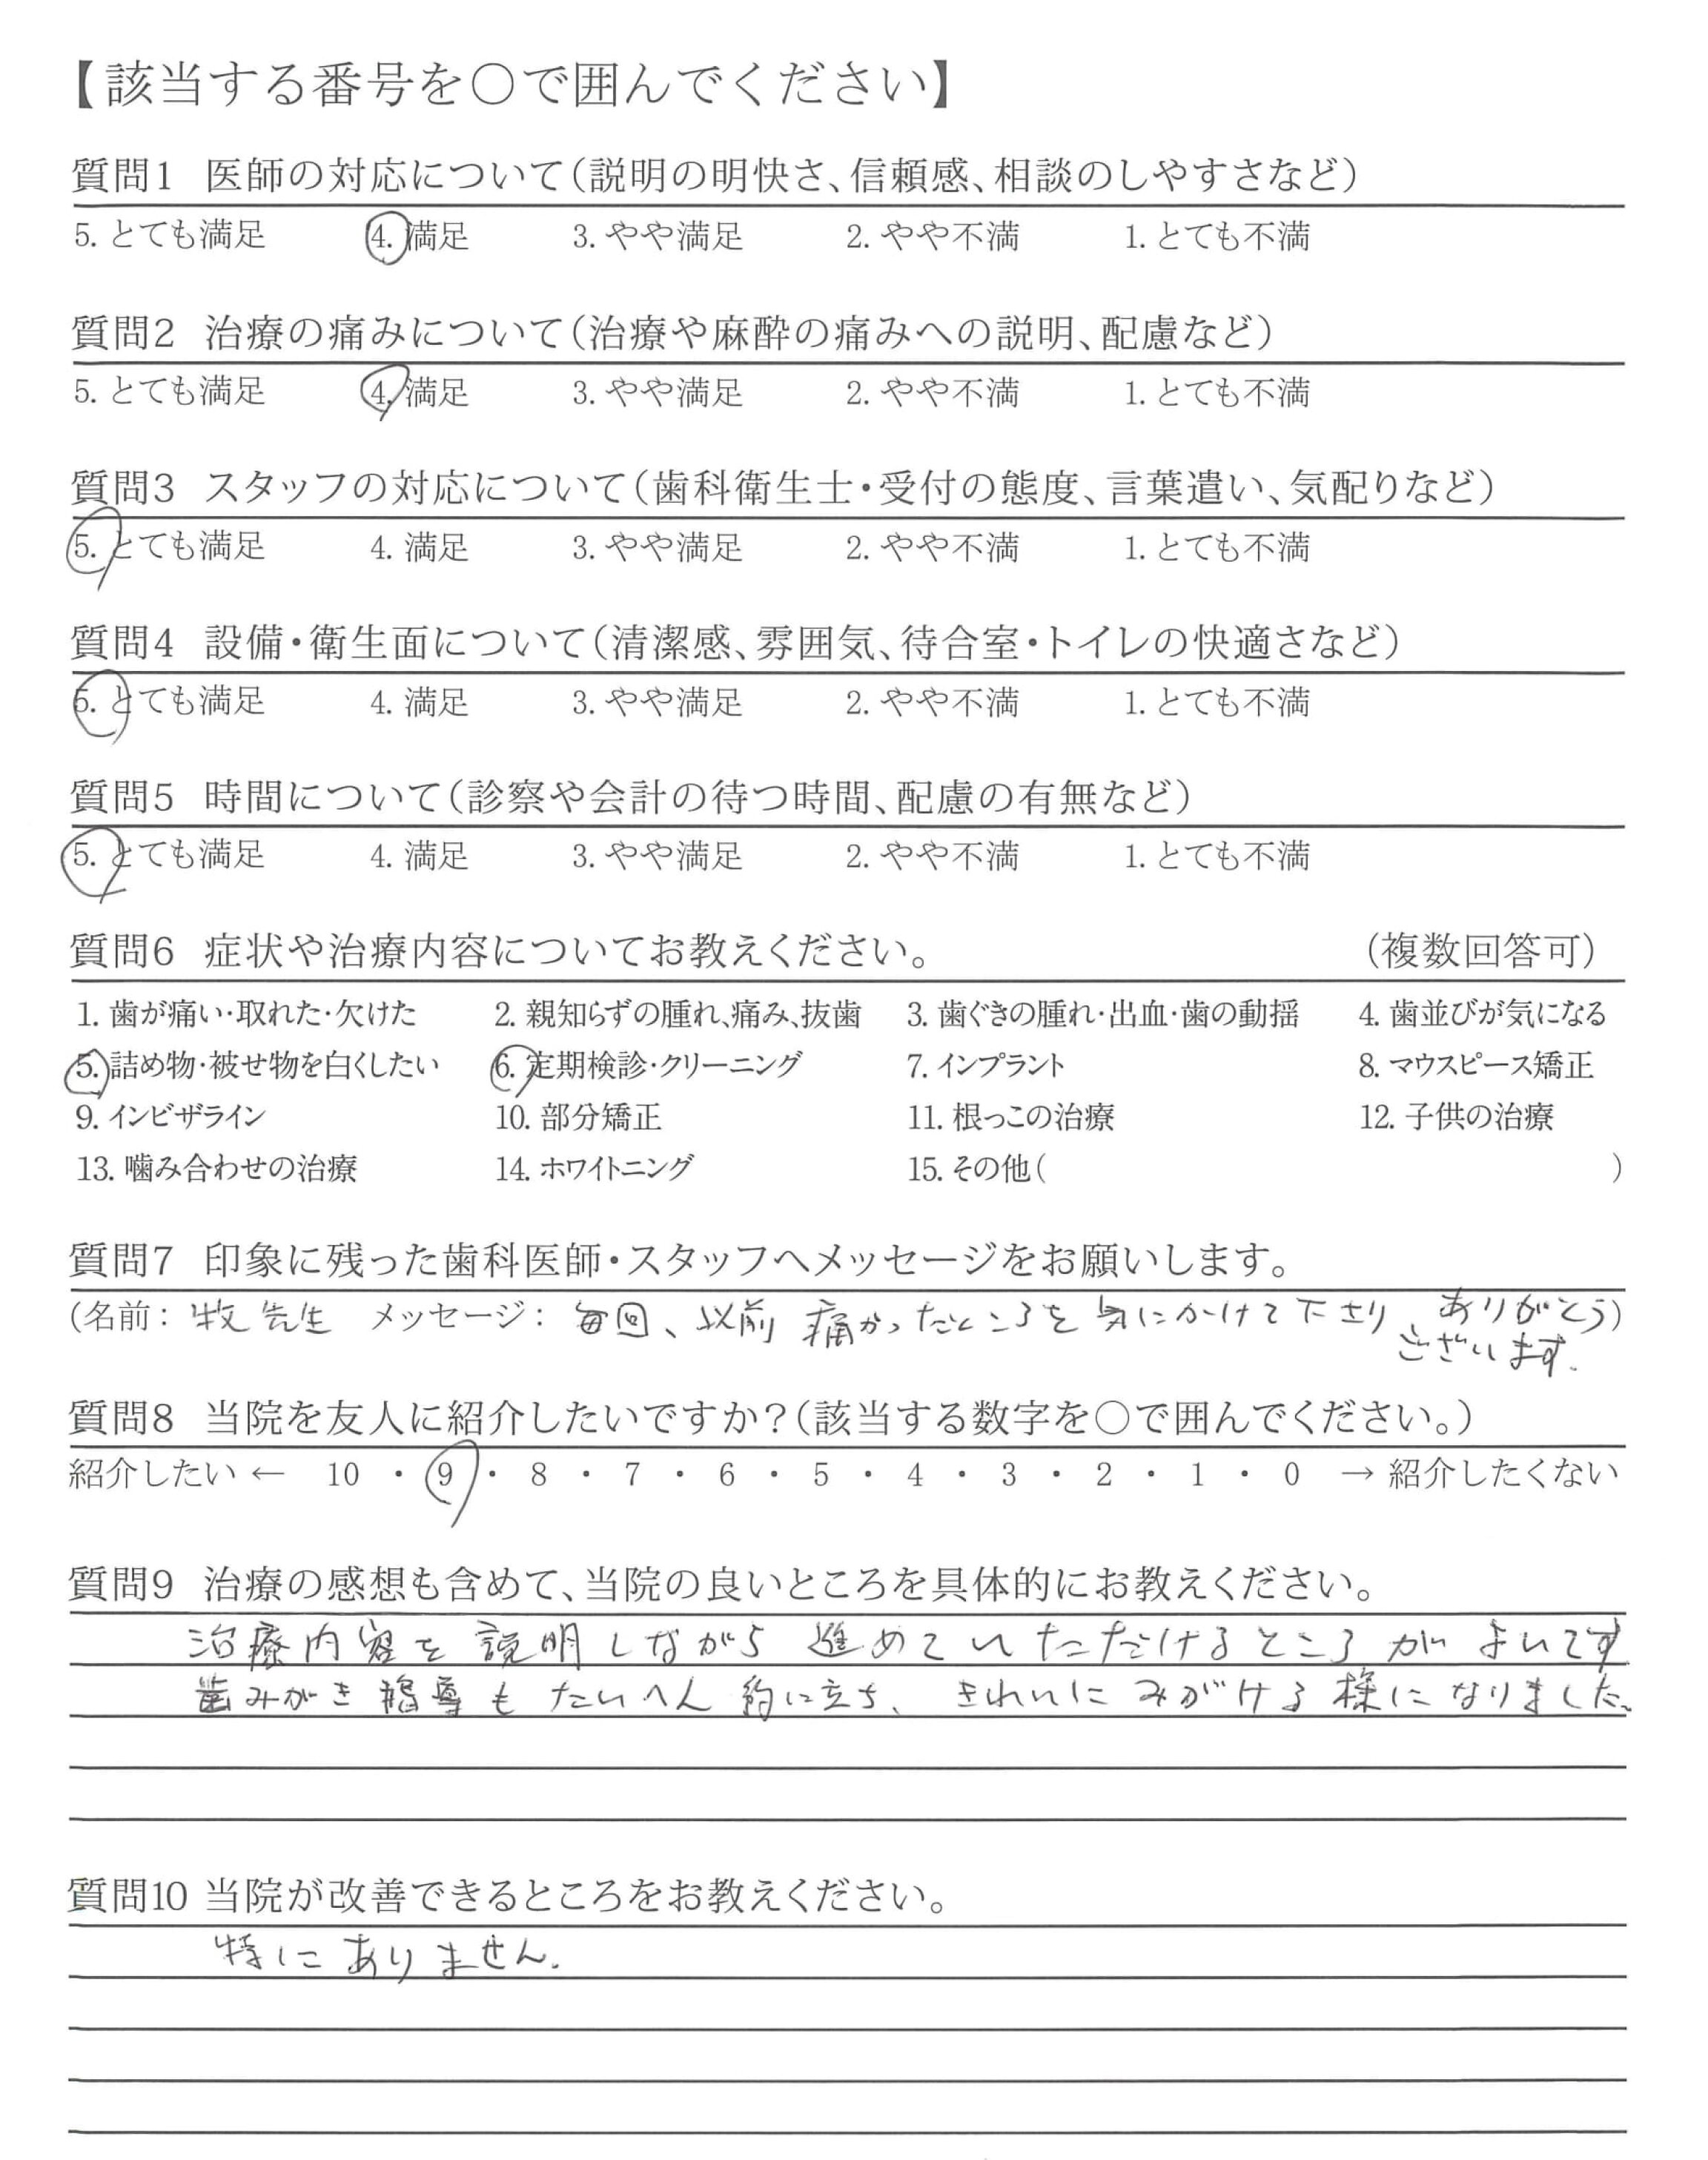 【該当する番号を○で囲んでください】
質問1 医師の対応について(説明の明快さ、信頼感、相談のしやすさなど)
5. とても満足 4. 満足 3. やや満足 2. やや不満 1. とても不満
質問2 治療の痛みについて(治療や麻酔の痛みへの説明、配慮など)
5. とても満足 4. 満足 3. やや満足 2. やや不満 1. とても不満
質問3 スタッフの対応について(歯科衛生士・受付の態度、言葉遣い、気配りなど)
5. とても満足 4. 満足 3. やや満足 2. やや不満 1. とても不満
質問4 設備・衛生面について(清潔感、雰囲気、待合室・トイレの快適さなど)
5. とても満足 4. 満足 3. やや満足 2. やや不満 1. とても不満
質問5 時間について(診察や会計の待つ時間、配慮の有無など)
5. とても満足 4. 満足 3. やや満足 2. やや不満 1. とても不満
質問6 症状や治療内容についてお教えください。 (複数回答可)
1. 歯が痛い・取れた・欠けた 2. 親知らずの腫れ、痛み、抜歯 3. 歯ぐきの腫れ・出血・歯の動揺 4. 歯並びが気になる
5. 詰め物・被せ物を白くしたい 6. 定期検診・クリーニング 7. インプラント 8. マウスピース矯正
9. インビザライン 10. 部分矯正 11. 根っこの治療 12. 子供の治療
13. 噛み合わせの治療 14. ホワイトニング 15. その他( )
質問7 印象に残った歯科医師・スタッフへメッセージをお願いします。
(名前: 牧先生 メッセージ: 毎回、以前痛かったところを気にかけて下さり ありがとう)
ございます.
質問8 当院を友人に紹介したいですか?(該当する数字を○で囲んでください。)
紹介したい ← 10 ・ 9 ・ 8 ・ 7 ・ 6 ・ 5 ・ 4 ・ 3 ・ 2 ・ 1 ・ 0 → 紹介したくない
質問9 治療の感想も含めて、当院の良いところを具体的にお教えください。
治療内容を説明しながら進めていただけるところがよいです
歯みがき指導もたいへん約に立ち、きれいにみがける様になりました。
質問10 当院が改善できるところをお教えください。
特にありません.